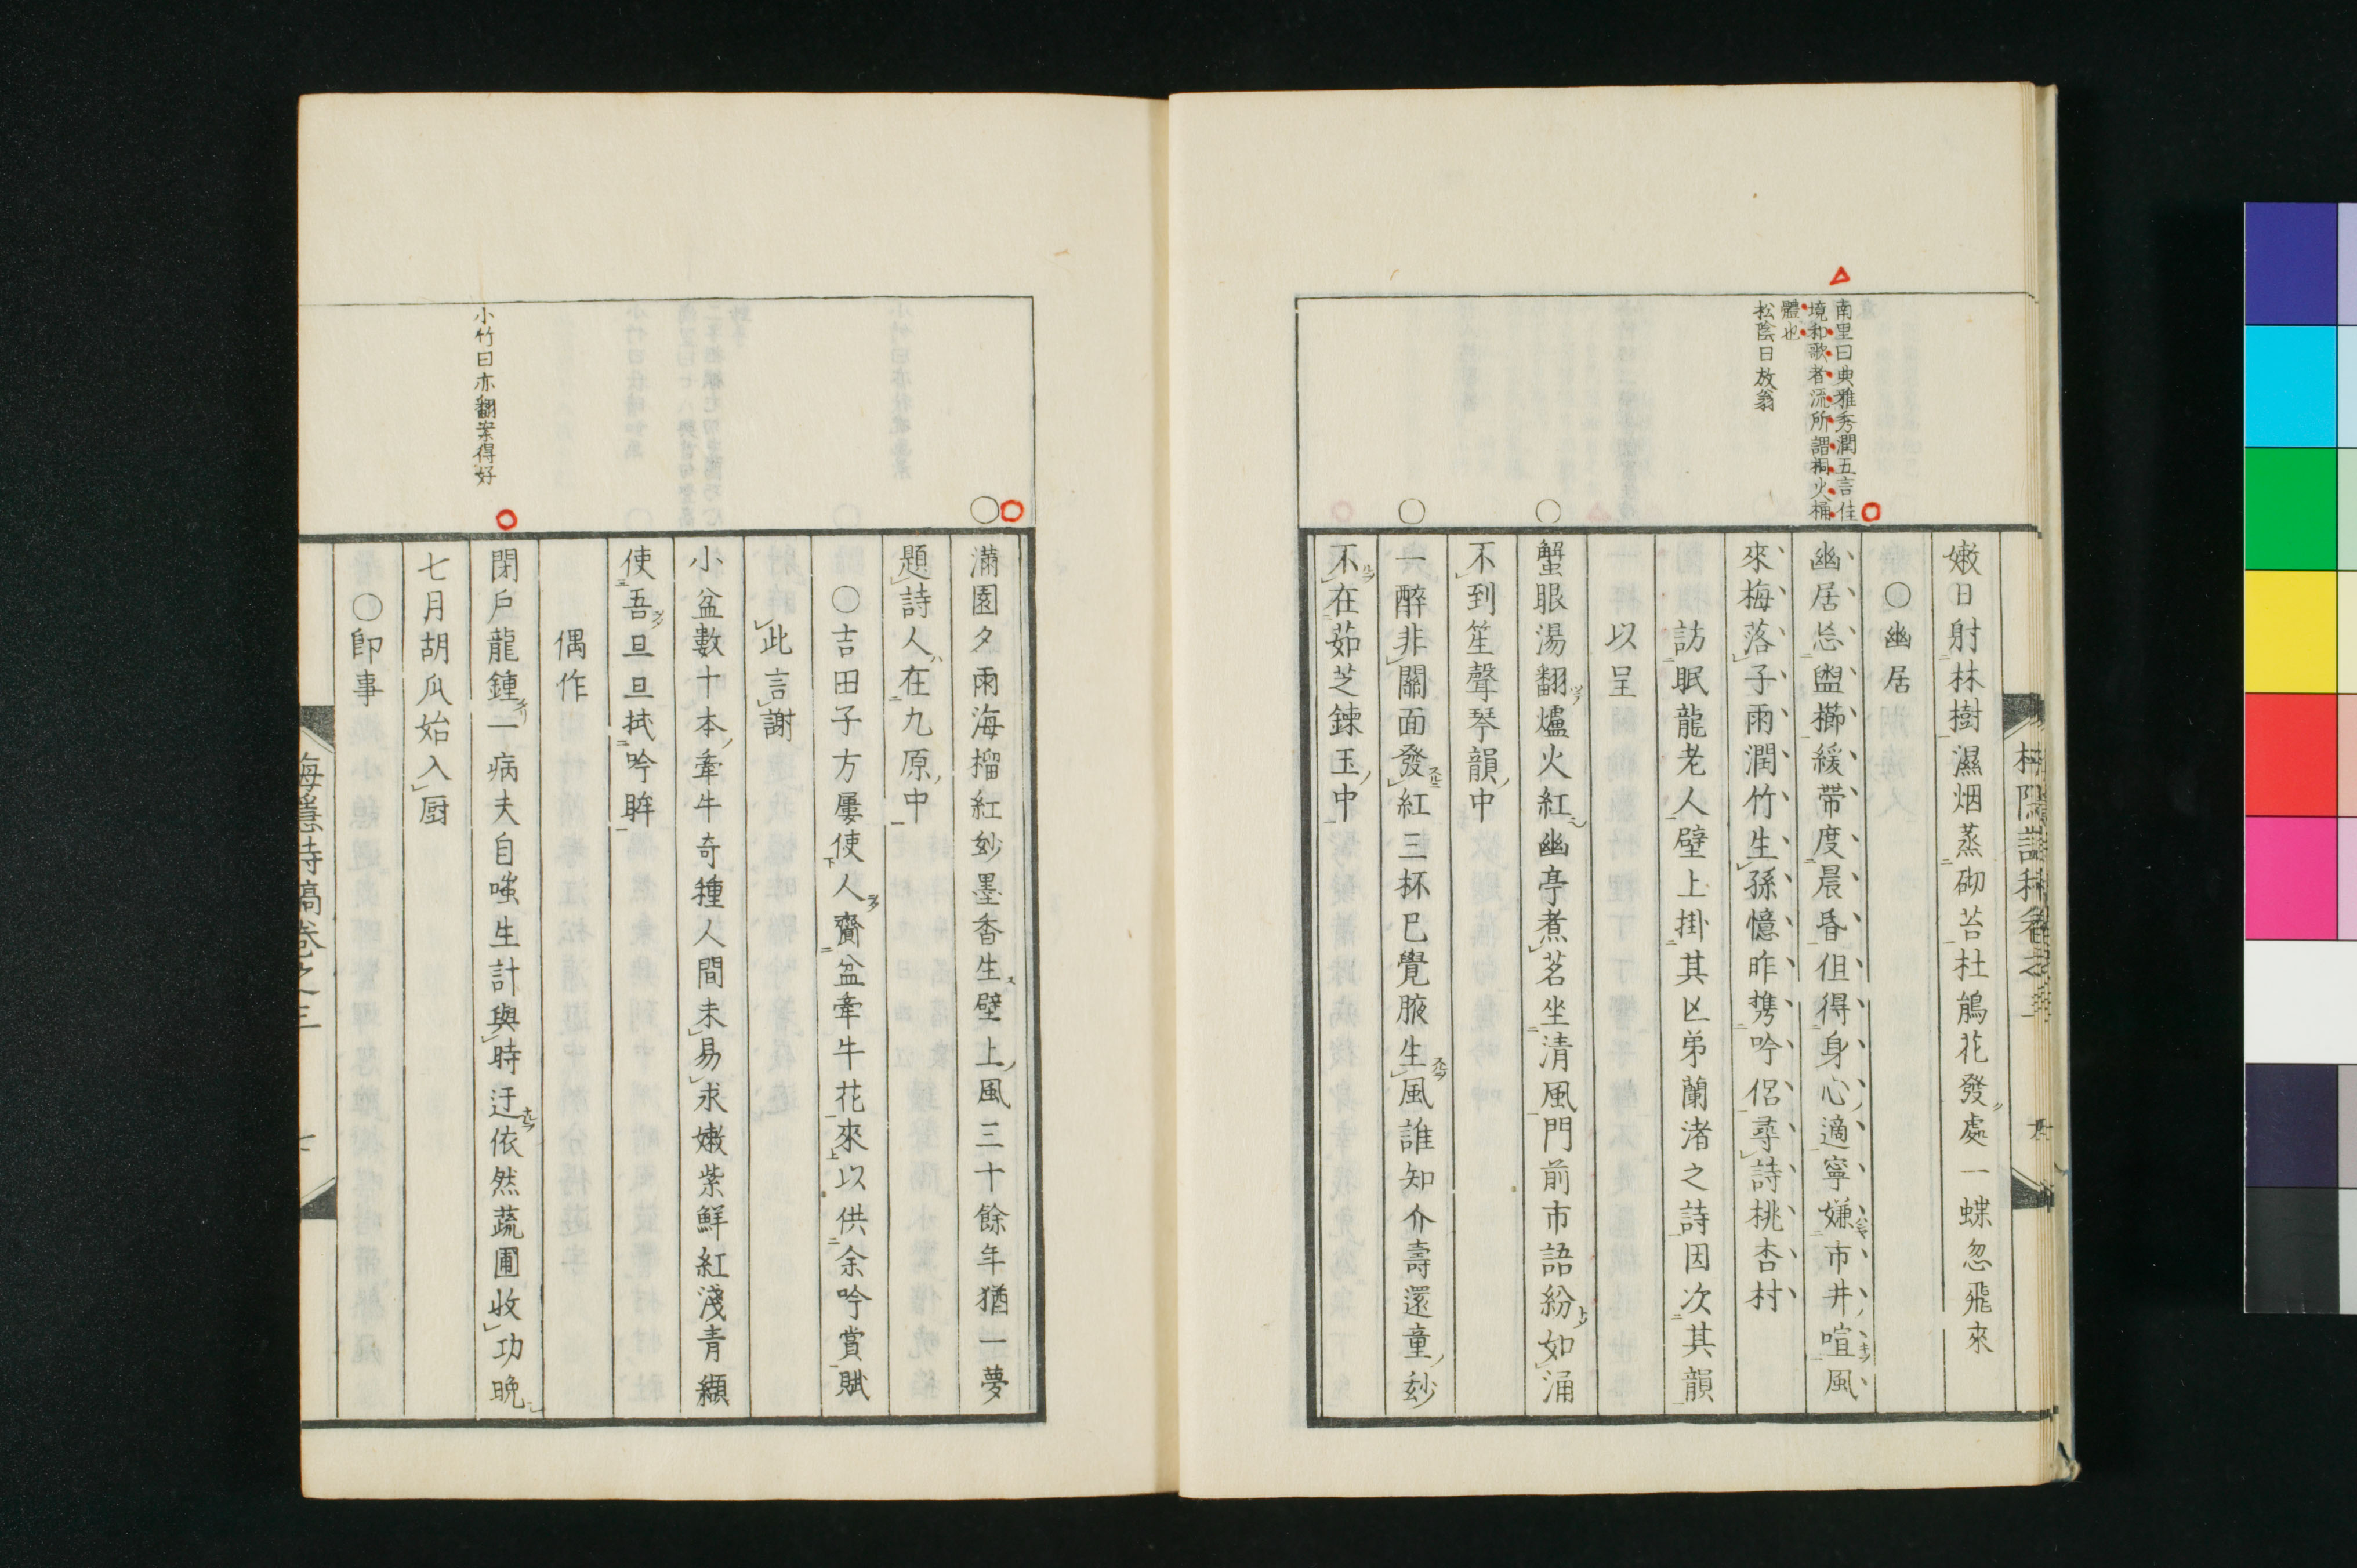 南里曰典雅秀潤五言佳
境和歌者流所謂桐火桶
體也
松陰日放翁
嫩日射林樹濕烟蒸砌苔杜鵑花發處一蝶忽飛來
○幽居
幽居忘盥櫛緩帶度晨昏但得身心適寧嫌市井喧風
來梅落子雨潤竹生孫憶昨携吟侶尋詩桃杏村
訪眠龍老人壁上掛其亡弟蘭渚之詩因次其韻
以呈
○
蟹眼湯翻爐火紅幽亭煮茗坐清風門前市語紛如涌
不到笙聲琴韻中
○
一醉非關面發紅三杯已覺腋生風誰知介壽還童玅
不在茹芝鍊玉中
○
滿園夕雨海榴紅玅墨香生壁上風三十餘年猶一夢
題詩人在九原中
○吉田子方屢使人齎盆牽牛花來以供余吟賞賦
此言謝
小盆數十本牽牛奇種人間未易求嫩紫鮮紅淺青纈
使吾旦旦拭吟眸
偶作
小竹曰亦翻案得好
閉戶龍鍾一病夫自嗤生計與時迂依然蔬圃收功晩
七月胡瓜始入厨
○卽事
梅隱詩稿卷之三